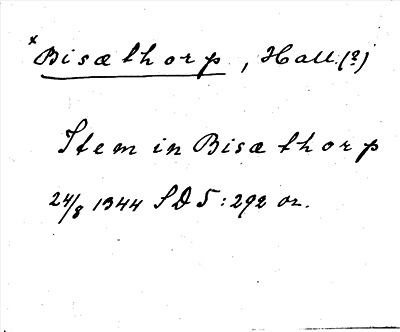 *Bisæthorp, Hall.(?)
Item in Bisæthorp
24/8 1344 SD 5:292 or.